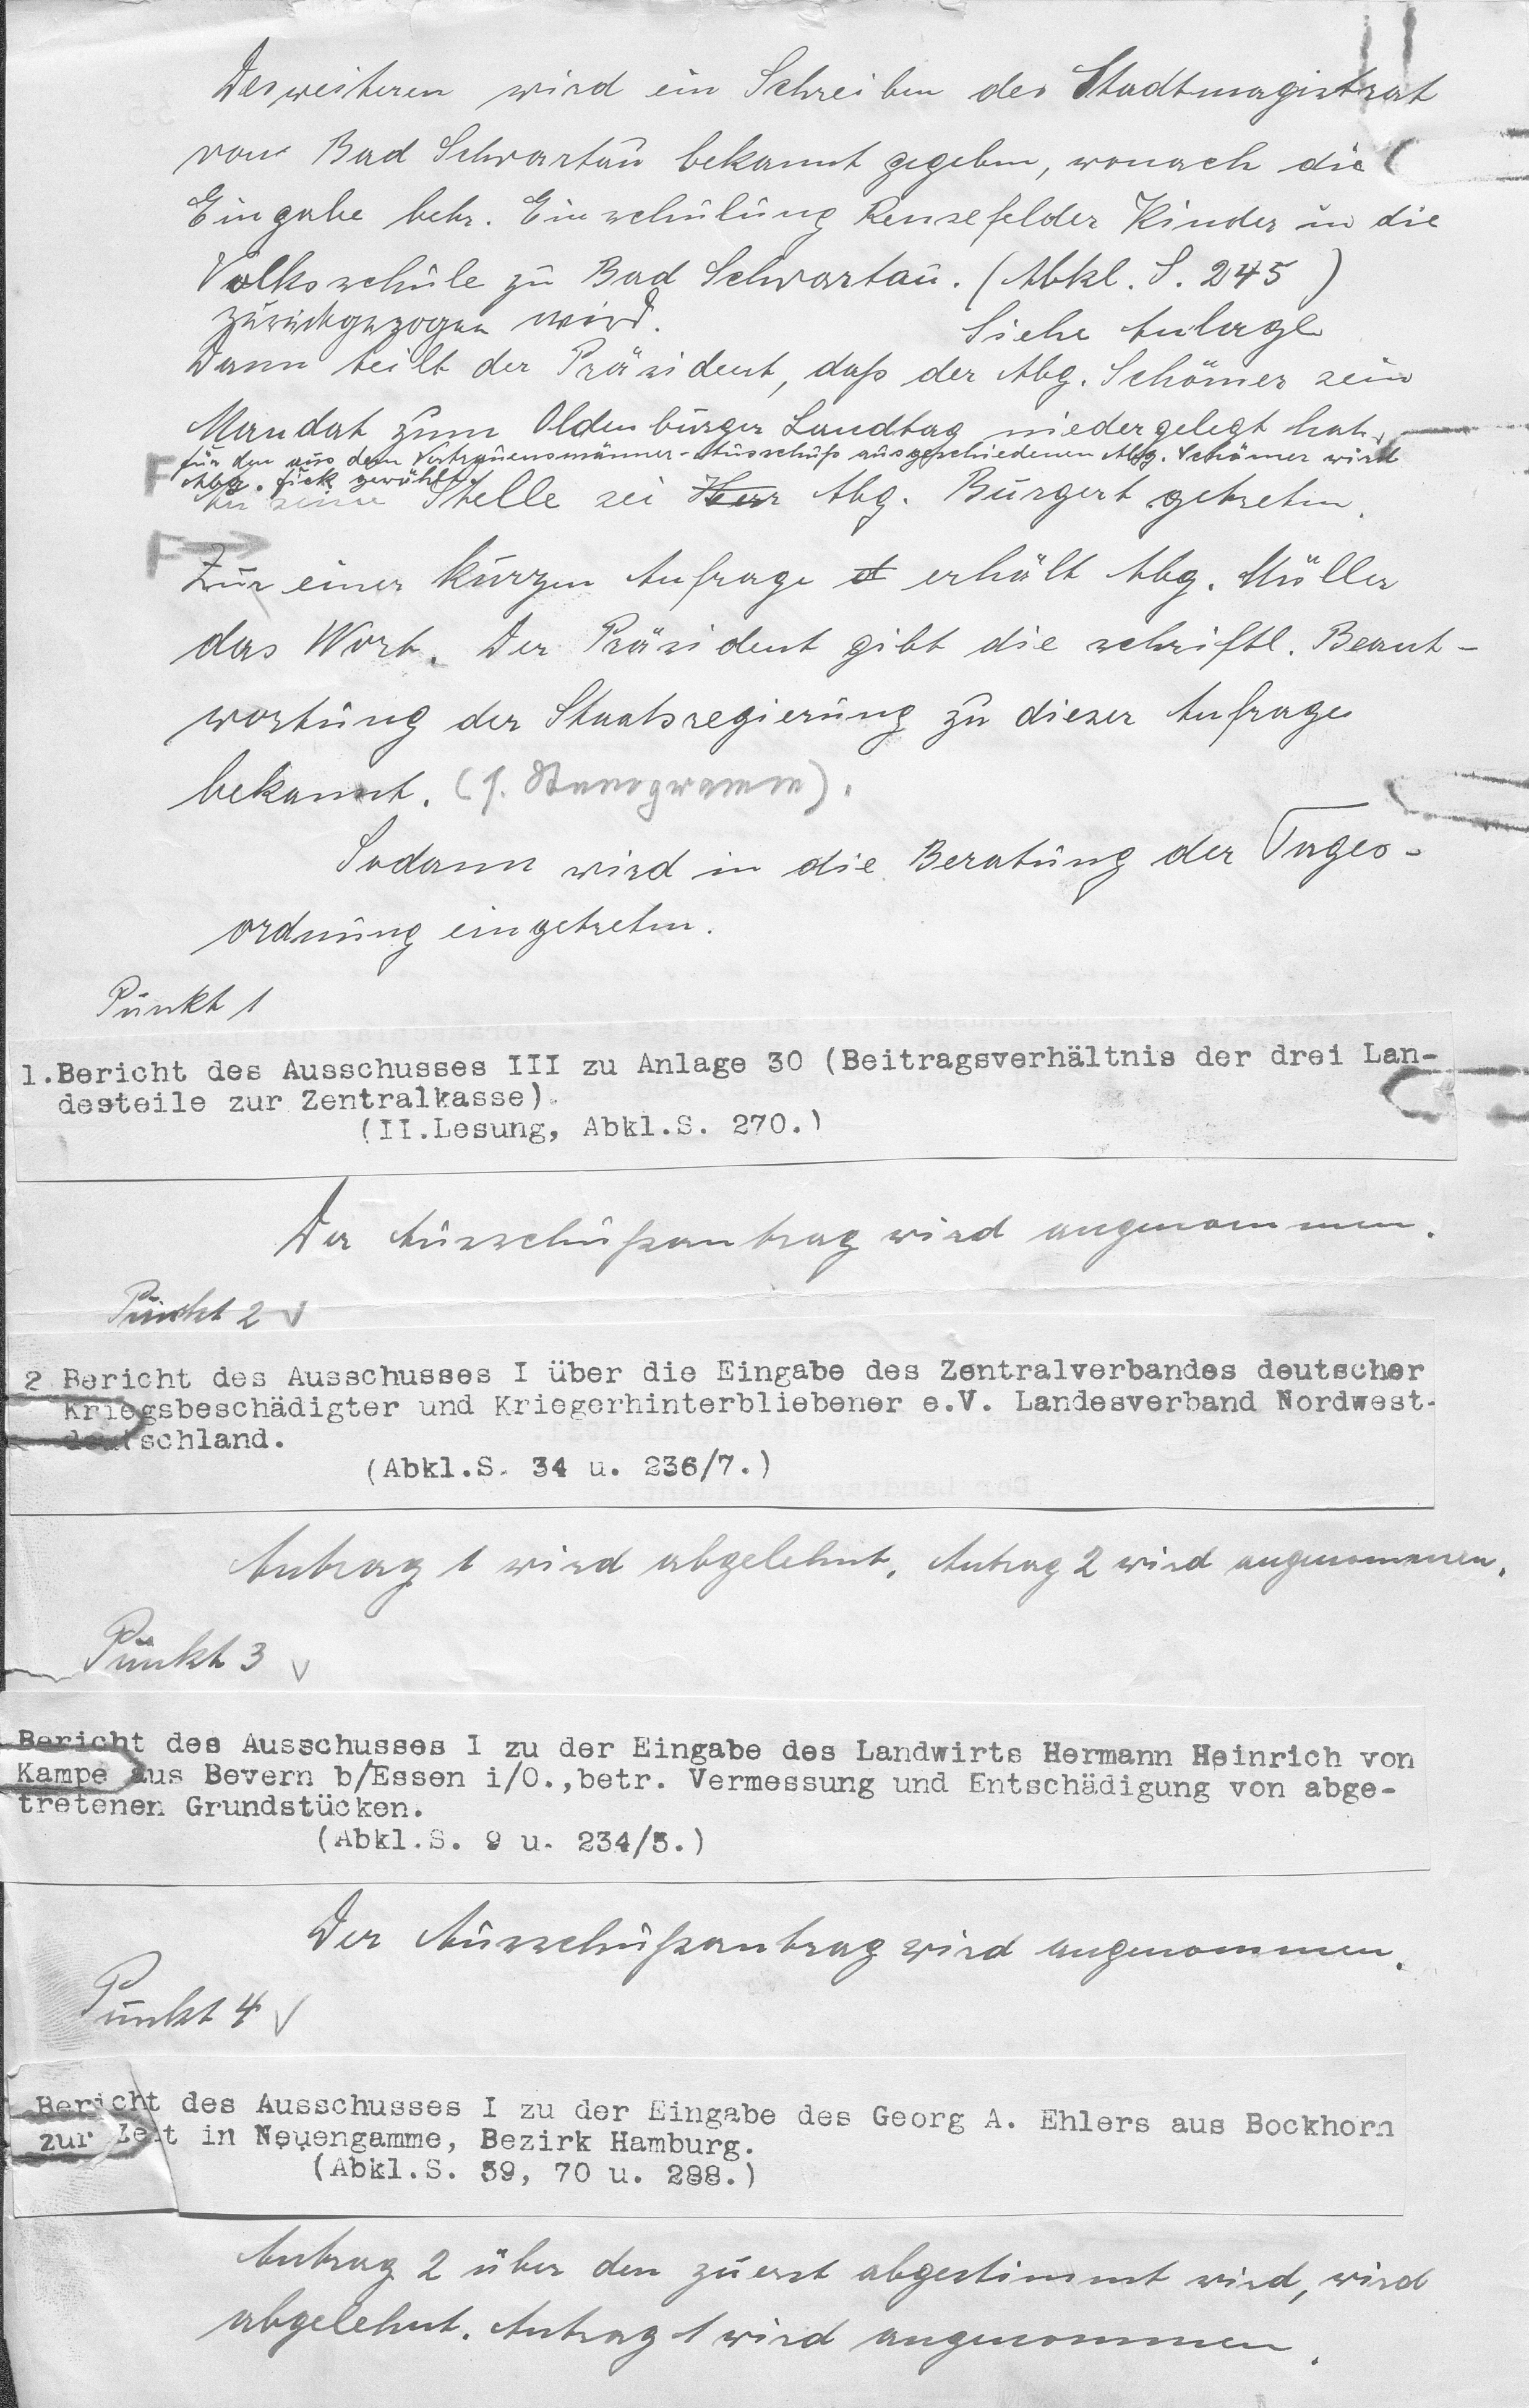 Desweiteren wird ein Schreiben des Stadtmagistrat
von Bad Schwartau bekannt gegeben, wonach die
Eingabe betr. Einschulung Rensefelder Kinder in die
Volksschule zu Bad Schwartau. (Abkl. S. 245)
zurückgezogen wird. Siehe Anlage
Dann teilt der Präsident, daß der Abg. Schömer sein
Mandat zum Oldenburger Landtag niedergelegt hat.
für den aus dem Vertrauensmänner-Ausschuß ausgeschiedenen Abg. Schömer wird
Abg. Fick gewählt.
An seine Stelle sei Herr Abg. Burgert getreten.
Zur einer kurzen Anfrage et erhält Abg. Müller
das Wort. Der Präsident gibt die schriftl. Beant-
wortung der Staatsregierung zu dieser Anfrage
bekannt. (s. Stenogramm).
Sodann wird in die Beratung der Tages-
ordnung eingetreten.
Punkt 1
1.Bericht des Ausschusses III zu Anlage 30 (Beitragsverhältnis der drei Lan-
desteile zur Zentralkasse).
(II.Lesung, Abkl.S. 270.)
Der Ausschußantrag wird angenommen.
Punkt 2
2 Bericht des Ausschusses I über die Eingabe des Zentralverbandes deutscher
Kriegsbeschädigter und Kriegerhinterbliebener e.V. Landesverband Nordwest-
deutschland.
(Abkl.S. 34 u. 236/7.)
Antrag 1 wird abgelehnt. Antrag 2 wird angenommen.
Punkt 3
Bericht des Ausschusses I zu der Eingabe des Landwirts Hermann Heinrich von
Kampe aus Bevern b/Essen i/O.,betr. Vermessung und Entschädigung von abge-
tretenen Grundstücken.
(Abkl.S. 9 u. 234/5.)
Der Ausschußantrag wird angenommen.
Punkt 4
Bericht des Ausschusses I zu der Eingabe des Georg A. Ehlers aus Bockhorn
zur Zeit in Neuengamme, Bezirk Hamburg.
(Abkl.S. 59, 70 u. 288.)
Antrag 2 über den zuerst abgestimmt wird, wird
abgelehnt. Antrag 1 wird angenommen.